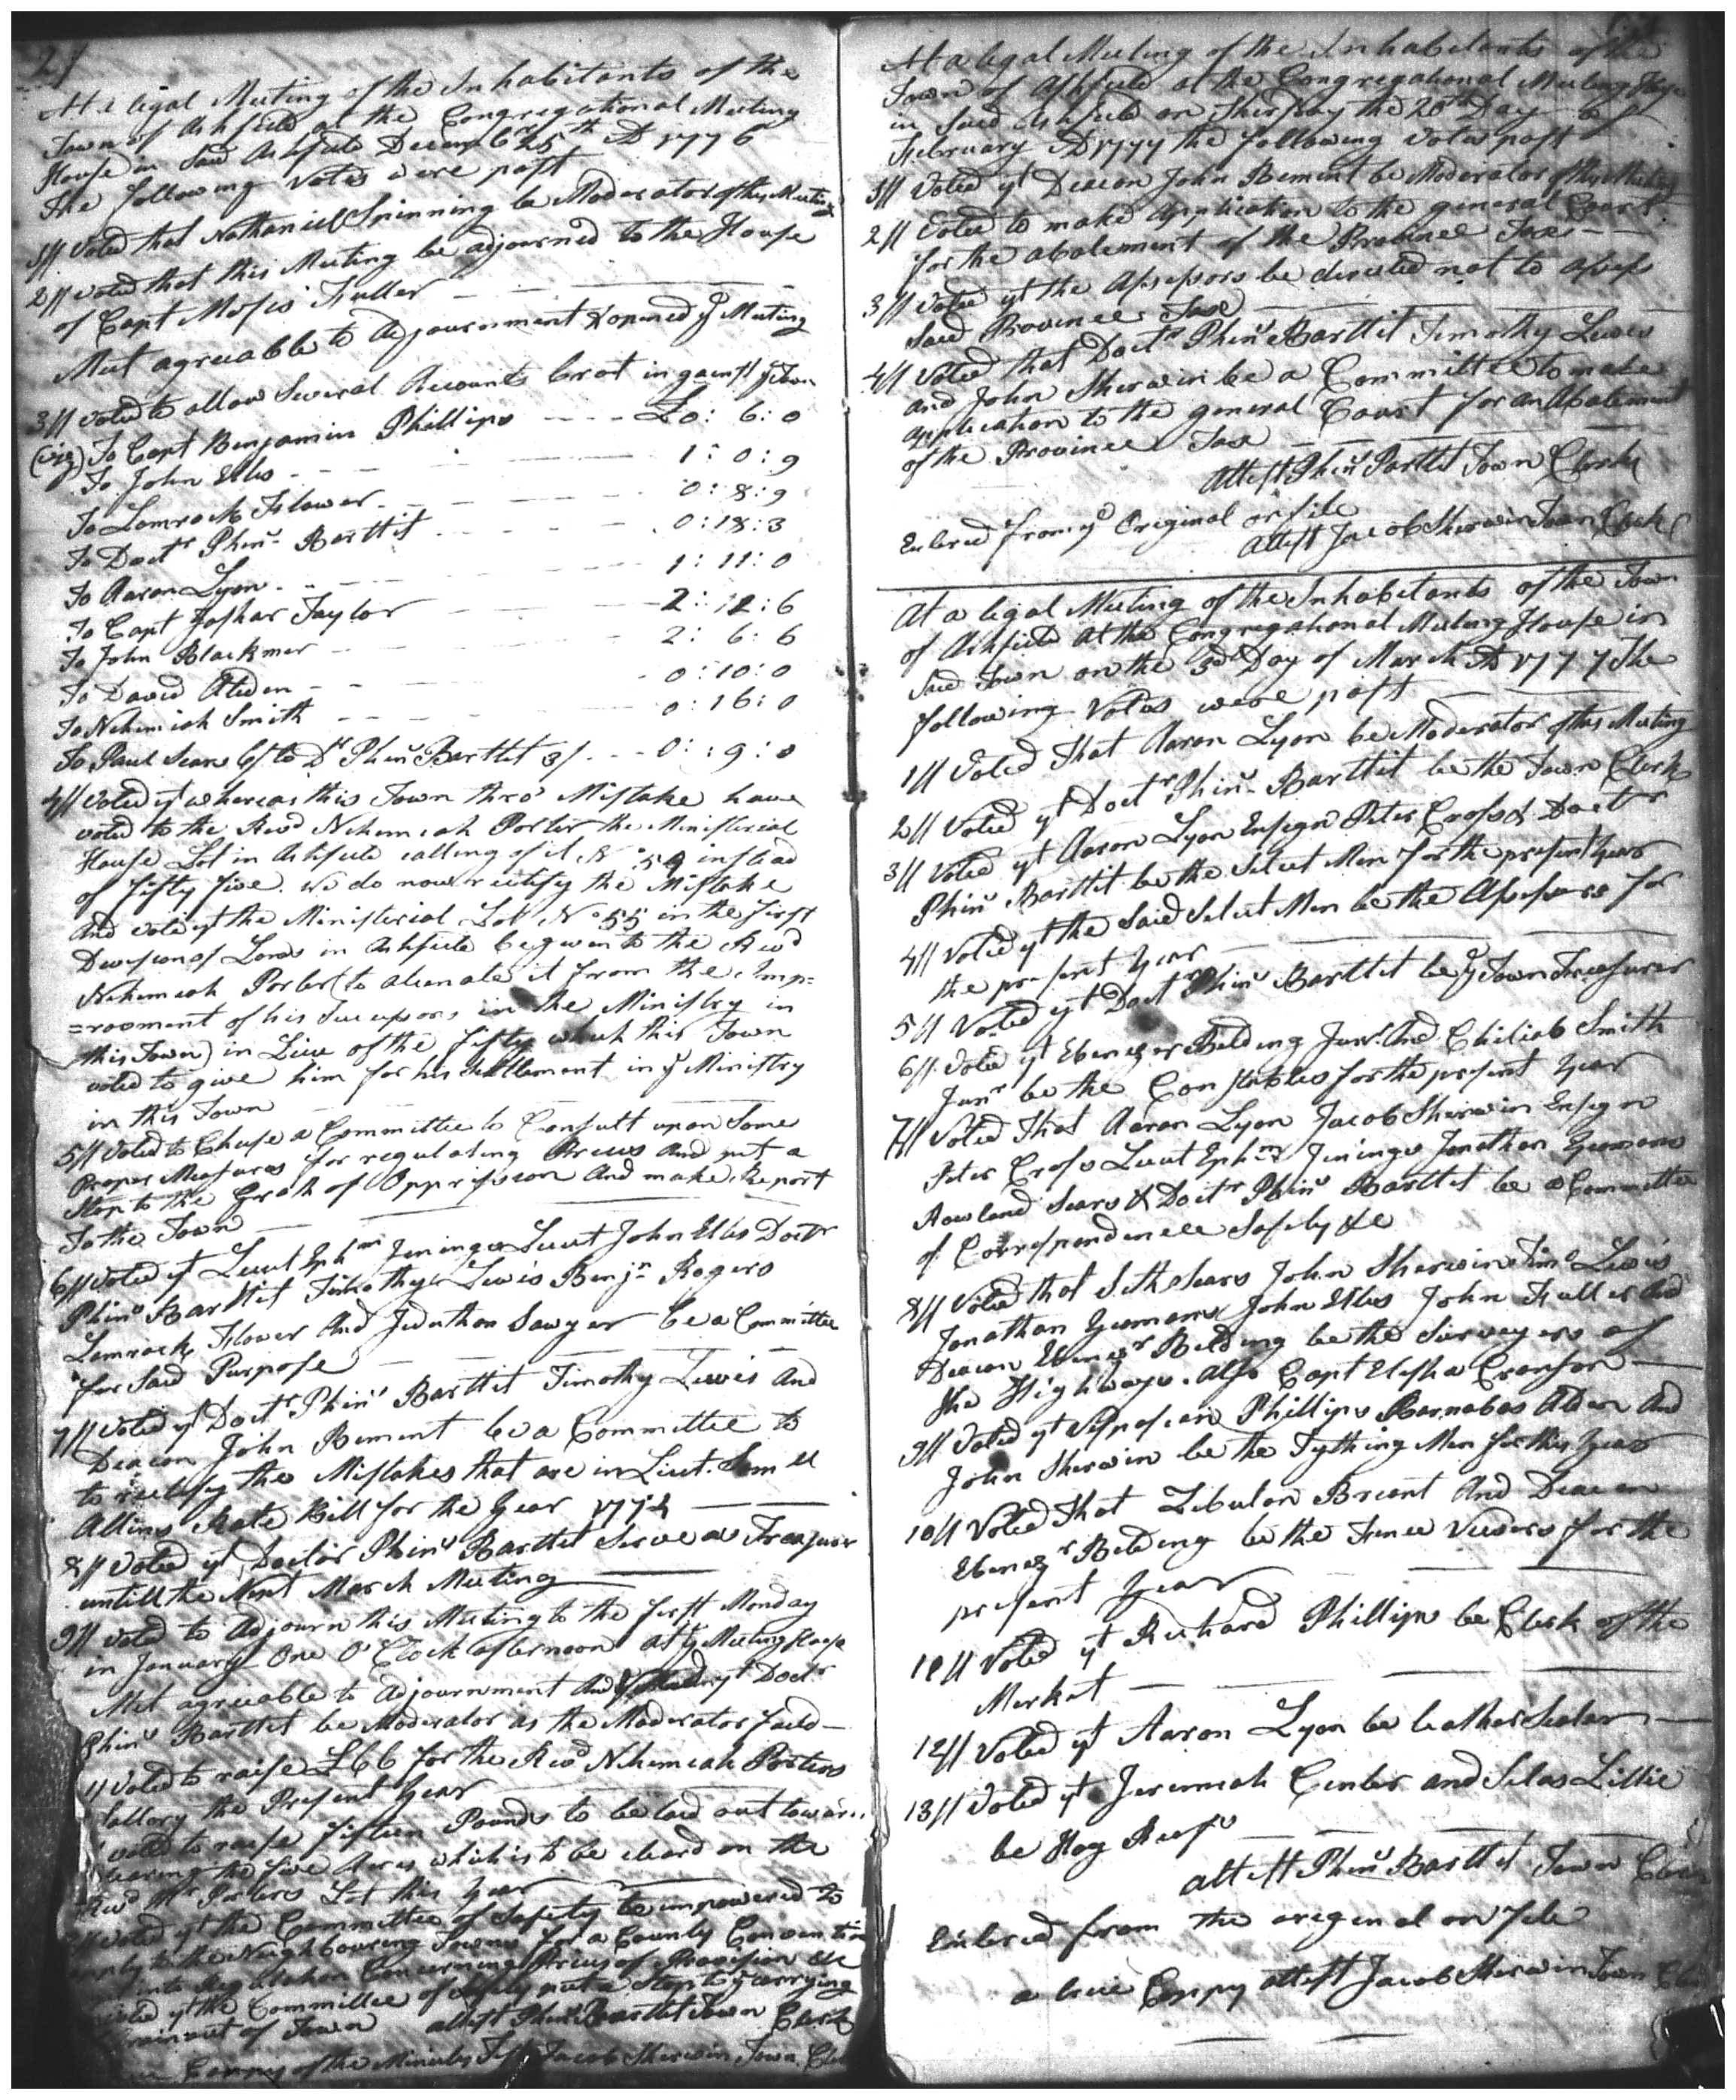 At a legal Meeting of the Inhabitants of the
Town of Ashfield at the Congregational Meeting
House in Said Ashfield Decemr 25th AD 1776
the following Votes were past
1// Voted that Nathaniel Spinning be Moderator of this Meeting
2// Voted that this Meeting be adjourned to the House
of Capt Moses Fuller
Met agreeable to Adjournment & opened ye Meeting
3// Voted to allow Several Accounts brot in against ye Town
(viz) To Capt Benjamin Phillips - - - - £0 : 6 : 0
To John Ellis - - - 1 : 0 : 9
To Lamrock Flower - - - 0 : 8 : 9
To Doctr Phins Bartlit - - - 0 : 18 : 3
To Aaron Lyon - - - 1 : 11 : 0
To Capt Jashar Taylor - - - 2 : 12 : 6
To John Blackmer - - - 2 : 6 : 6
To David Alden - - - 0 : 10 : 0
To Nehemiah Smith - - - 0 : 16 : 0
To Paul Sears 6/ to Dr Phins Bartlit 3/ - - - 0 : 9 : 0
4// Voted yt whereas this Town thro' Mistake have
voted to the Revd Nehemiah Porter the Ministerial
House Lot in Ashfield calling of it No 54 instead
of fifty five. we do now rectify the Mistake
And vote yt the Ministerial Lot No 55 in the first
Devision of Lands in Ashfield be given to the Revd
Nehemiah Porter (to alienate it from the Imp=
=rovment of his Successors in the Ministry in
this Town) in Lieu of the fifty which this Town
voted to give him for his settlement in ye Ministry
in this Town
5// Voted to Chuse a Committee to Consult upon Some
Proper Measures for regulating Prices And put a
Stop to the Groth of Oppression And make Report
To the Town
6// Voted yt Lieut Ephm Jenings Lieut John Ellis Doctr
Phins Bartlit Timothy Lewis Benjn Rogers
Lamrock Flower And Jeduthan Sawyer be a Committee
for Said Purpose
7// Voted yt Doctr Phins Bartlit Timothy Lewis And
Deacon John Bement be a Committee to
to rectify the Mistakes that are in Lieut. Samll
Allins Rate Bill for the Year 1774
8// Voted yt Doctor Phins Bartlit Serve as Treasurer
untill the Next March Meeting
9// Voted to Adjourn this Meeting to the first Monday
in January One O'Clock afternoon at ye Meeting House
Met agreeable to Adjournment And yt Doctr
Phins Bartlit be Moderator as the Moderator faild
Voted to raise £66 for the Revd Nehemiah Porters
Sallory the Present Year
voted to raise fifteen Pounds to be laid out towards
clearing the five Acres which is to be cleard on the
Revd Mr Porters Lot this Year
Voted yt the Committee of Safety be impowered to
apply to the Neighbouring Towns for a County Convention
into Regulation Concerning Prices of Provision &c
Voted yt the Committee of Safety put a Stop to ye carrying
out of Town attest Phins Bartlit Town Clerk
Coppy of the Minutes Test Jacob Sherwin Town Clerk
At a legal Meeting of the Inhabitants of the
Town of Ashfield at the Congregational Meeting House
in Said Ashfield on Thirsday the 20th Day of
February AD 1777 the following Votes past
1// Voted yt Deacon John Bement be Moderator of this Meeting
2// Voted to make Application to the general Court
for the abatement of the Province Tax
3// Voted yt the Assessors be directed not to assess
Said Province Tax
4// Voted that Doctr Phins Bartlit Timothy Lewis
and John Sherwin be a Committee to make
Application to the general Court for an Abatement
of the Province Tax
attest Phins Bartlit Town Clerk
Entered from ye Original on file
attest Jacob Sherwin Town Clerk
At a legal Meeting of the Inhabitants of the Town
of Ashfield at the Congregational Meeting House in
Said Town on the 3d Day of March AD 1777 The
following Votes were past
1// Voted That Aaron Lyon be Moderator of this Meeting
2// Voted yt Doctr Phins Bartlit be the Town Clerk
3// Voted yt Aaron Lyon Ensign Peter Cross & Doctr
Phins Bartlit be the Select Men for the present Year
4// Voted yt the Said Select Men be the Assessors for
the present Year
5// Voted yt Doctr Phins Bartlit be ye Town Treasurer
6// Voted yt Ebenezer Belding Junr. And Chiliab Smith
Junr be the Constables for the present Year
7// Voted That Aaron Lyon Jacob Sherwin Ensign
Peter Cross Lieut Ephm Jenings Jonathan Yeomans
Rowland Sears & Doctr Phins Bartlit be a Committee
of Correspondence Safety &c
8// Voted that Seth Sears John Sherwin Timo Lewis
Jonathan Yeomans John Ellis John Fuller And
Deacon Ebenezr Belding be the Surveyers of
the Highways. Also Capt Elisha Cranson
9// Voted yt Vespasian Phillips Barnabas Alden And
John Sherwin be the Tything Men for this Year
10// Voted That Zebulon Breant And Deacon
Ebenezr Belding be the Fence Viewers for the
present Year
11// Voted yt Richard Phillips be Clerk of the
Market
12// Voted yt Aaron Lyon be leather Sealer
13// Voted yt Jeremiah Center and Silas Lillie
be Hog Reefs
attest Phins Bartlit Town Clerk
Entered from the oregenal on File
a true Coppy attest Jacob Sherwin Town Clerk